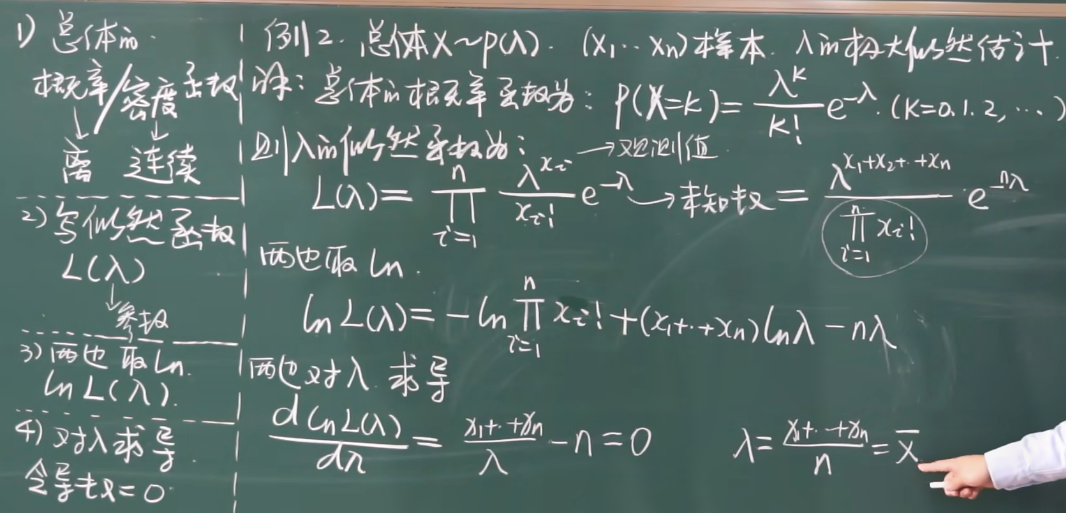 1) 总体的
概率/密度函数
↓ ↓
离 连续
2) 写似然函数
L(λ)
↓
参数
3) 两边取ln.
ln L(λ).
4) 对λ求导
令导数=0.
例2. 总体X~p(λ). (x₁…xn)样本. λ的极大似然估计.
解: 总体的概率函数为: P(X=K)=\frac{λ^K}{K!}e^{-λ}. (K=0.1.2,…)
则λ的似然函数为: →观测值
L(λ)=\prod_{i=1}^{n}\frac{λ^{x_i}}{x_i!}e^{-λ}→未知数=\frac{λ^{x_1+x_2+…+x_n}}{\prod_{i=1}^{n}x_i!}·e^{-nλ}
两边取ln.
ln L(λ)=-ln\prod_{i=1}^{n}x_i!+(x_1+…+x_n)lnλ-nλ
两边对λ求导
\frac{d ln L(λ)}{dλ}=\frac{x_1+…+x_n}{λ}-n=0 λ=\frac{x_1+…+x_n}{n}=\overline{x}